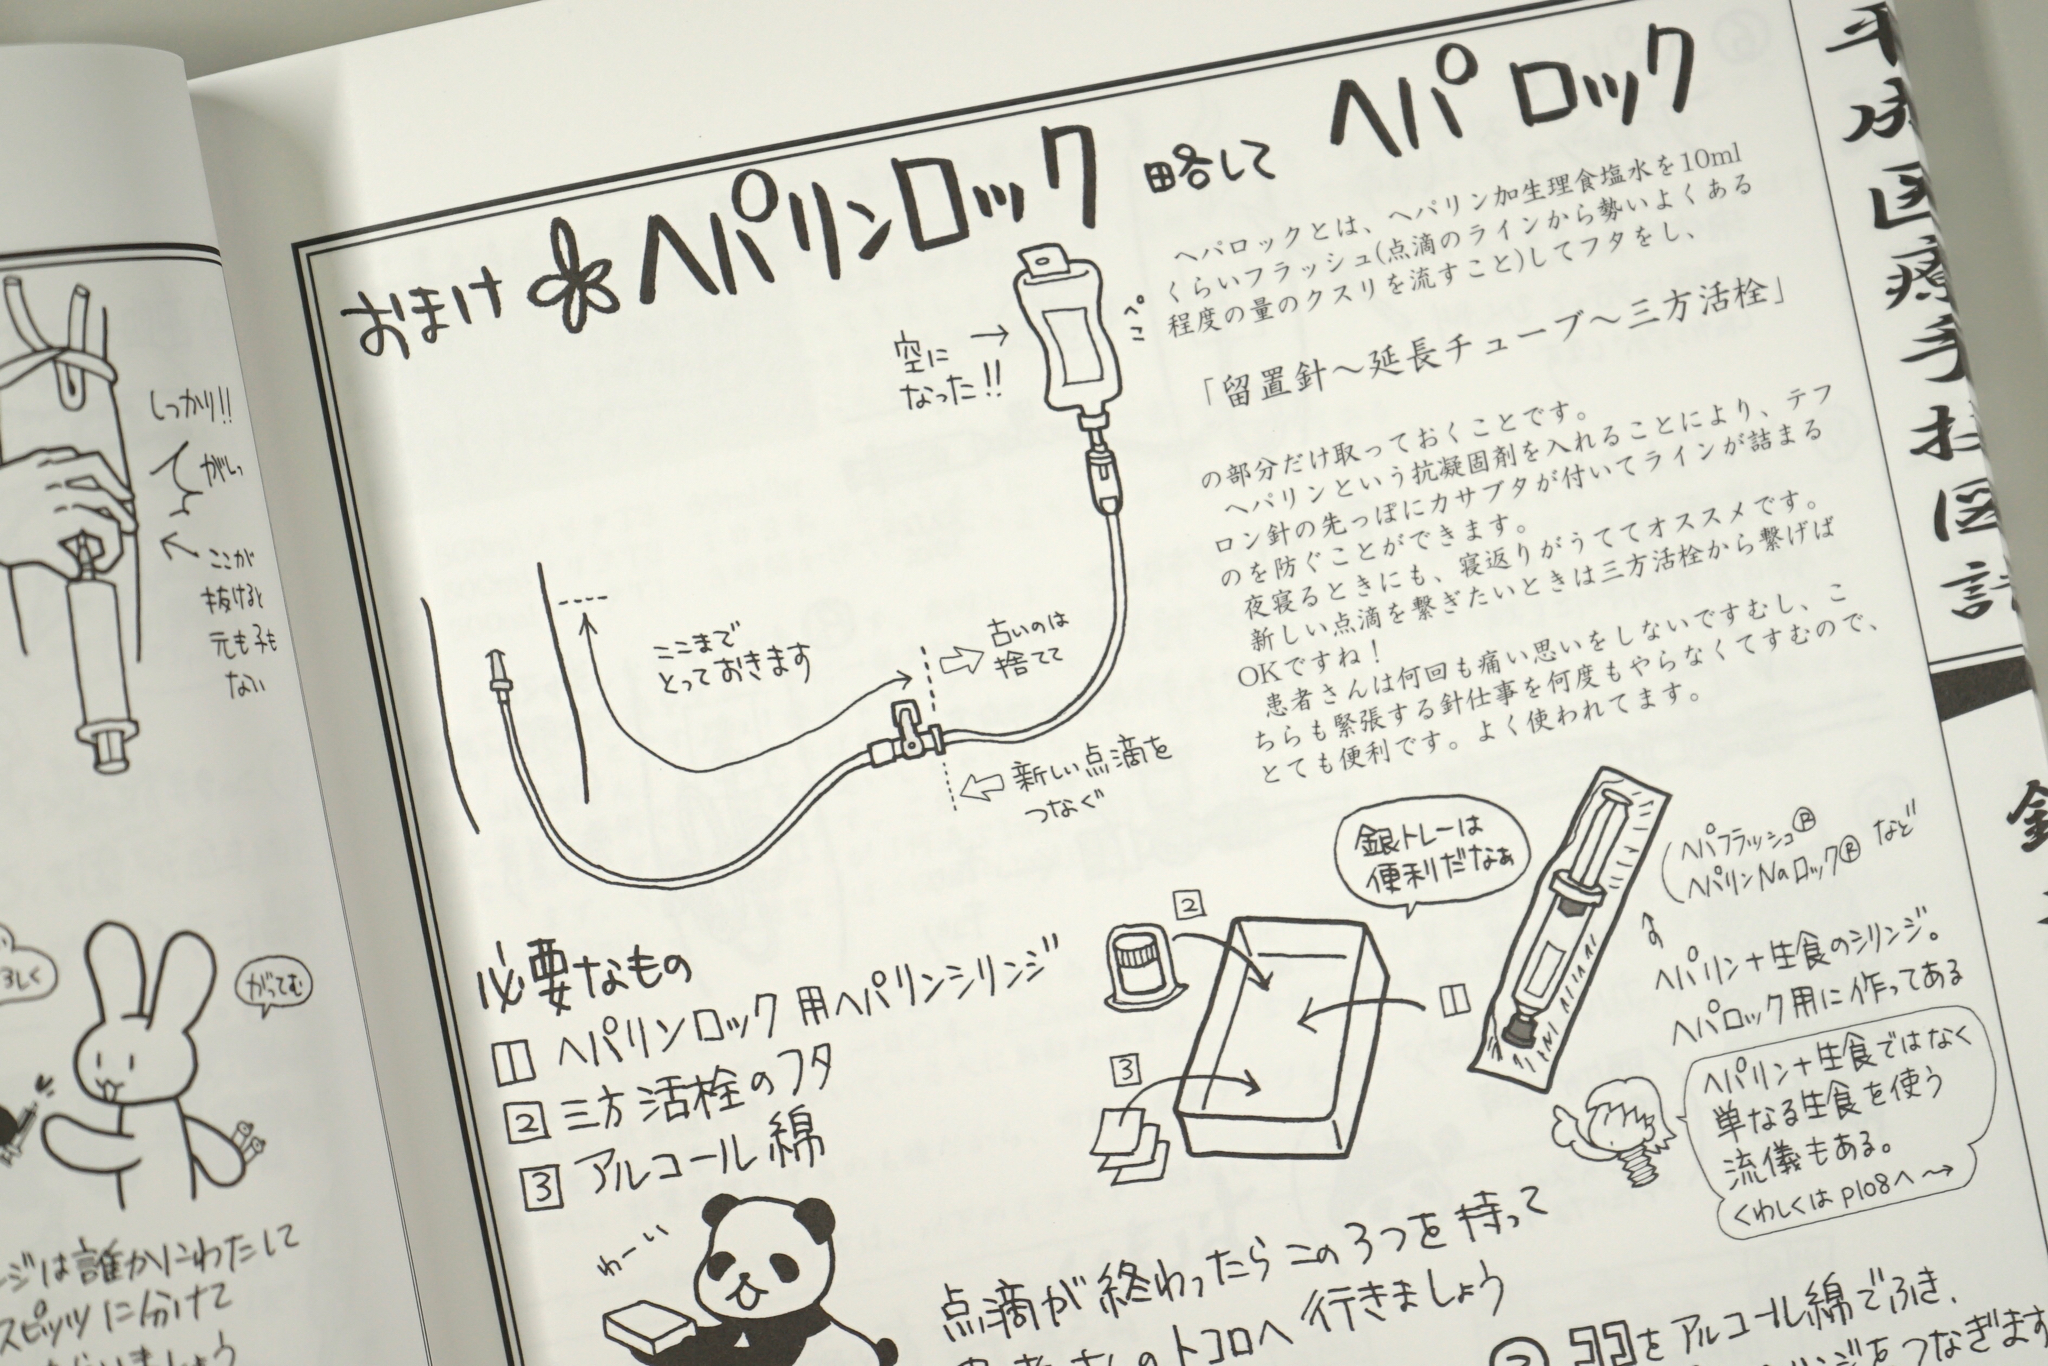 しっかり!!
がしっ
ここが
抜けると
元も子も
ない
ろしく
がってむ
ジは誰かにわたして
スピッツに分けて
おまけ ヘパリンロック 略して ヘパロック
ヘパロックとは、ヘパリン加生理食塩水を10ml
くらいフラッシュ(点滴のラインから勢いよくある
程度の量のクスリを流すこと)してフタをし、
「留置針〜延長チューブ〜三方活栓」
の部分だけ取っておくことです。
ヘパリンという抗凝固剤を入れることにより、テフ
ロン針の先っぽにカサブタが付いてラインが詰まる
のを防ぐことができます。
夜寝るときにも、寝返りがうててオススメです。
新しい点滴を繋ぎたいときは三方活栓から繋げば
OKですね！
患者さんは何回も痛い思いをしないですむし、こ
ちらも緊張する針仕事を何度もやらなくてすむので、
とても便利です。よく使われてます。
空に
なった!!
ペこ
ここまで
とっておきます
古いのは
捨てて
新しい点滴を
つなぐ
必要なもの
1 ヘパリンロック用ヘパリンシリンジ
2 三方活栓のフタ
3 アルコール綿
銀トレーは
便利だなぁ
2
1
3
(ヘパフラッシュ®
ヘパリンNaロック® など
ヘパリン+生食のシリンジ。
ヘパロック用に作ってある
ヘパリン+生食ではなく
単なる生食を使う
流儀もある。
くわしくは P108へ→
わーい
点滴が終わったらこの3つを持って
トコロへ行きましょう
をアルコール綿でふき、
をつなぎます
医療手技図